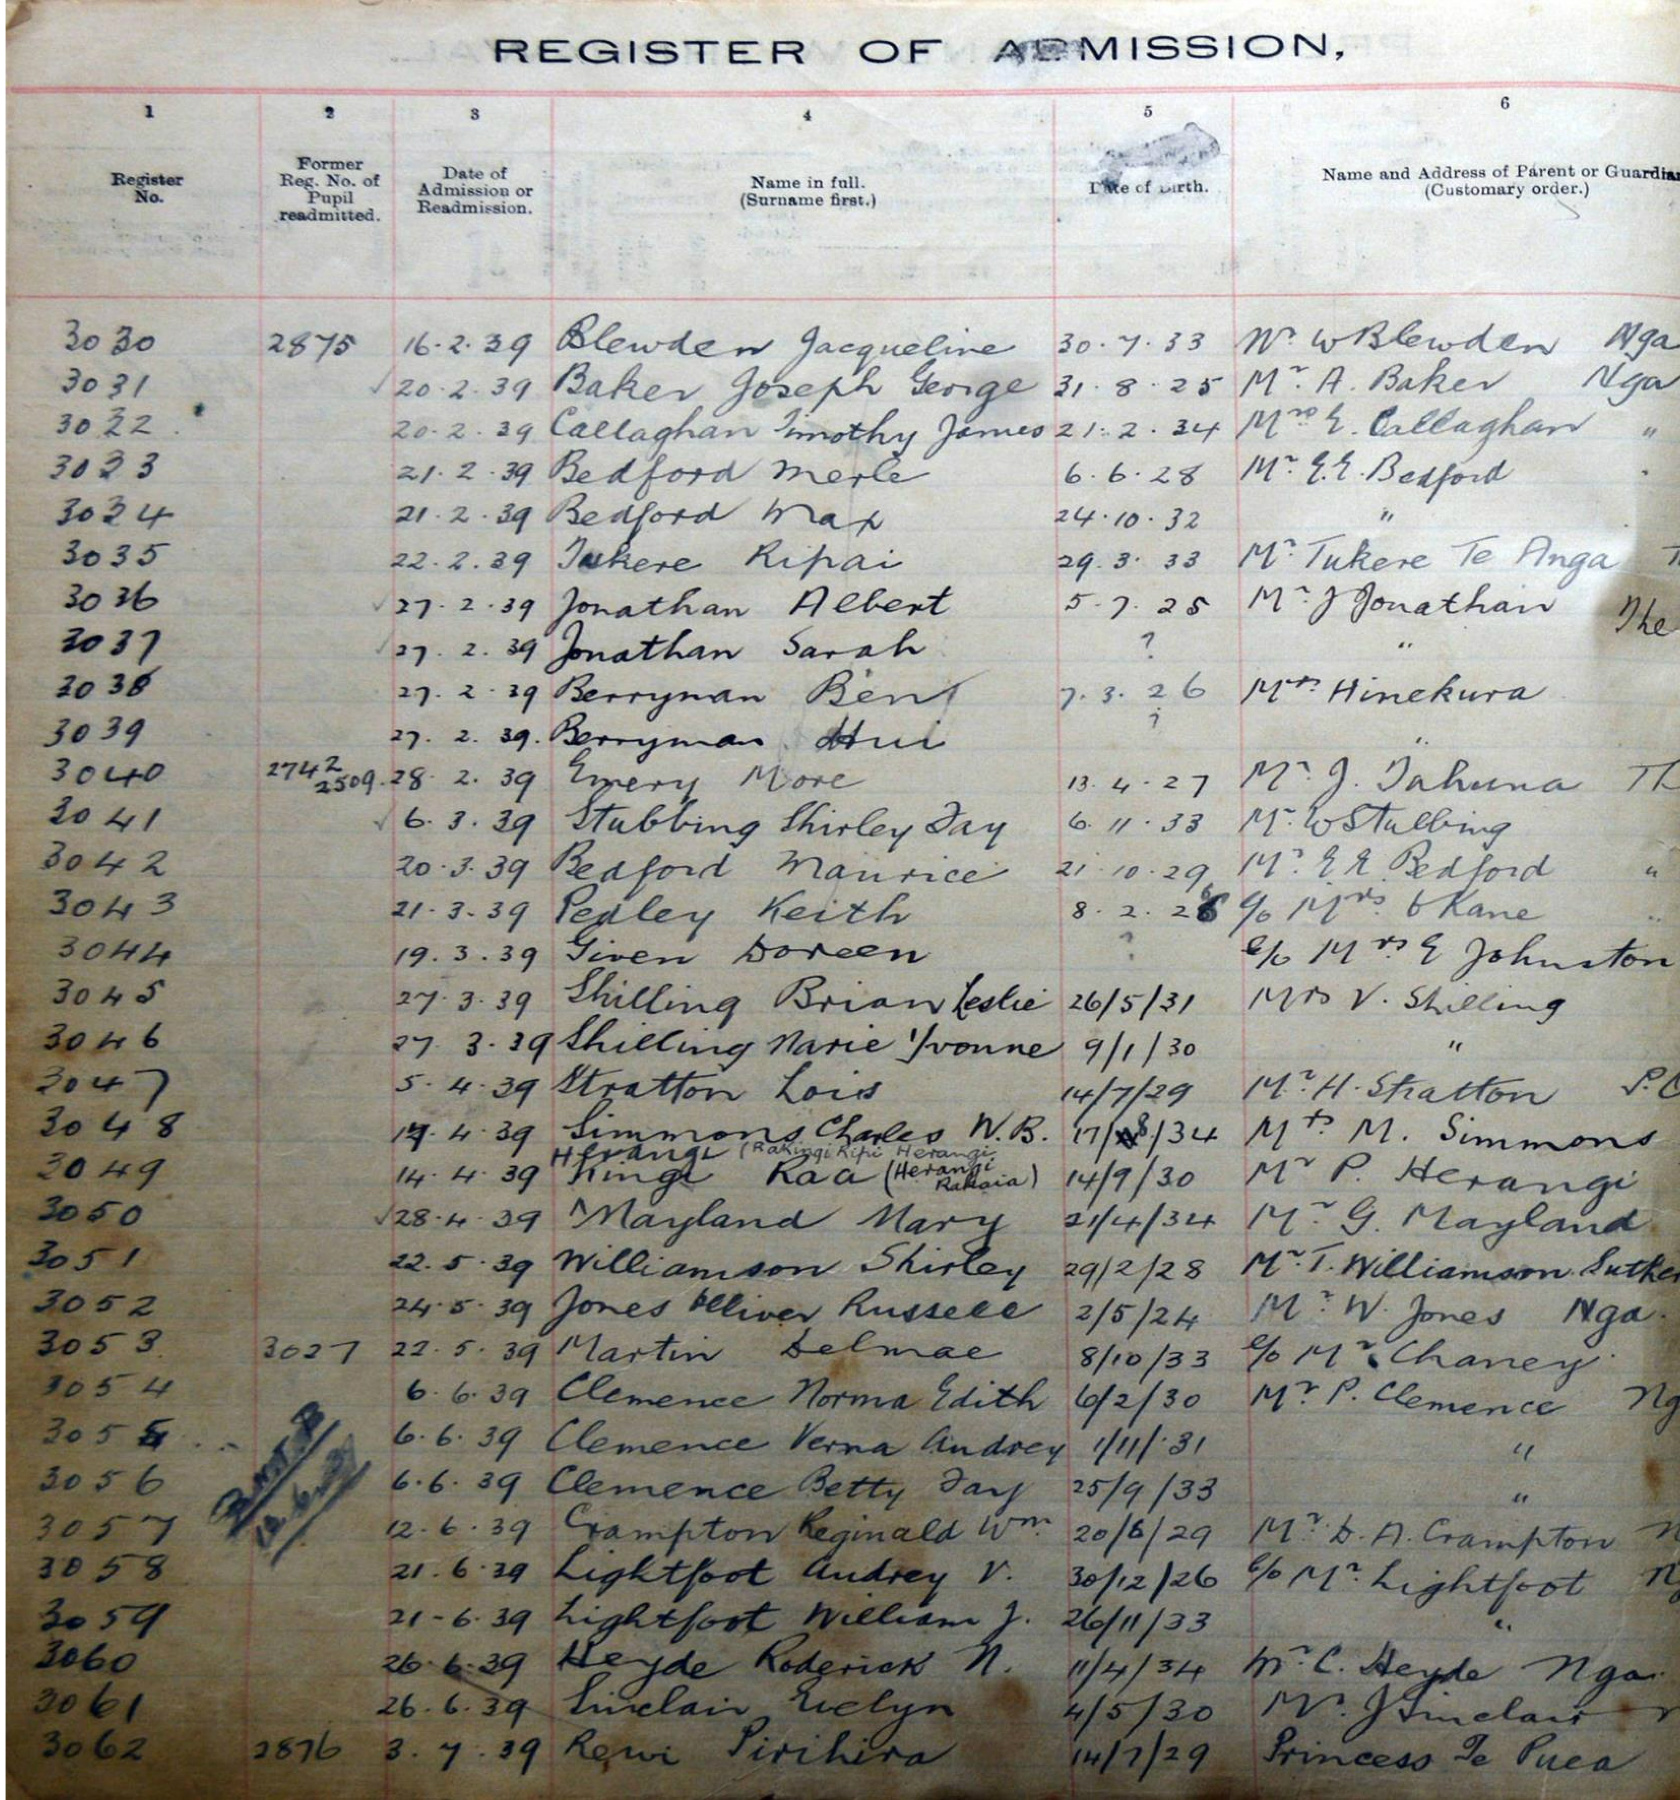 REGISTER OF ADMISSION,
1 2 3 4 5 6
Register No. Former Reg. No. of Pupil readmitted. Date of Admission or Readmission. Name in full. (Surname first.) Date of Birth. Name and Address of Parent or Guardian (Customary order.)
3030 2875 16.2.39 Blewden Jacqueline 30.7.33 Mr. W Blewden Nga
3031 ✓ 20.2.39 Baker Joseph George 31.8.25 Mr. A. Baker Nga
3032 20.2.39 Callaghan Timothy James 21.2.34 Mrs E. Callaghan "
3033 21.2.39 Bedford Merle 6.6.28 Mr. E.E. Bedford "
3034 21.2.39 Bedford Max 24.10.32 "
3035 22.2.39 Tukere Ripai 29.3.33 Mr. Tukere Te Anga
3036 ✓ 27.2.39 Jonathan Albert 5.7.25 Mr. J Jonathan The
3037 ✓ 27.2.39 Jonathan Sarah ? "
3038 27.2.39 Berryman Ben 7.3.26 Mrs Hinekura
3039 27.2.39. Berryman Hui ? "
3040 2742 2509. 28.2.39 Emery More 13.4.27 Mr. J. Tahuna Th
3041 ✓ 6.3.39 Stubbing Shirley Fay 6.11.33 Mr. W Stubbing
3042 20.3.39 Bedford Maurice 21.10.29 Mr. E E Bedford "
3043 21.3.39 Pedley Keith 8.2.26 c/o Mrs. O Kane "
3044 19.3.39 Given Doreen ? c/o Mrs E Johnston
3045 27.3.39 Shilling Brian Leslie 26/5/31 Mrs V. Shilling
3046 27.3.39 Shilling Marie Yvonne 9/1/30 "
3047 5.4.39 Stratton Lois 14/7/29 Mr. H. Stratton
3048 17.4.39 Simmons Charles W.B. 17/8/34 Mrs M. Simmons
Herangi (Rakingi Ripi Herangi
3049 14.4.39 Kingi Raa (Herangi Rakaia) 14/9/30 Mr P. Herangi
3050 ✓ 28.4.39 Mayland Mary 21/4/34 Mr G. Mayland
3051 22.5.39 Williamson Shirley 29/2/28 Mr. T. Williamson. Suther
3052 24.5.39 Jones Olliver Russell 2/5/24 Mr. W. Jones Nga.
3053 3027 22.5.39 Martin Delmae 8/10/33 c/o Mr. Chaney
3054 6.6.39 Clemence Norma Edith 6/2/30 Mr P. Clemence Ng
3055 6.6.39 Clemence Verna Audrey 1/11/31 "
3056 6.6.39 Clemence Betty Fay 25/9/33 "
3057 12.6.39 Crampton Reginald Wm. 20/6/29 Mr. D. A. Crampton
3058 21.6.39 Lightfoot Audrey V. 30/12/26 c/o Mr. Lightfoot
3059 21-6.39 Lightfoot William J. 26/11/33 "
3060 26.6.39 Heyde Roderick N. 11/4/34 Mr. C. Heyde Nga.
3061 26.6.39 Sinclair Evelyn 4/5/30 Mr. J Sinclair
3062 2876 3.7.39 Rewi Pirihira 14/7/29 Princess Te Puea